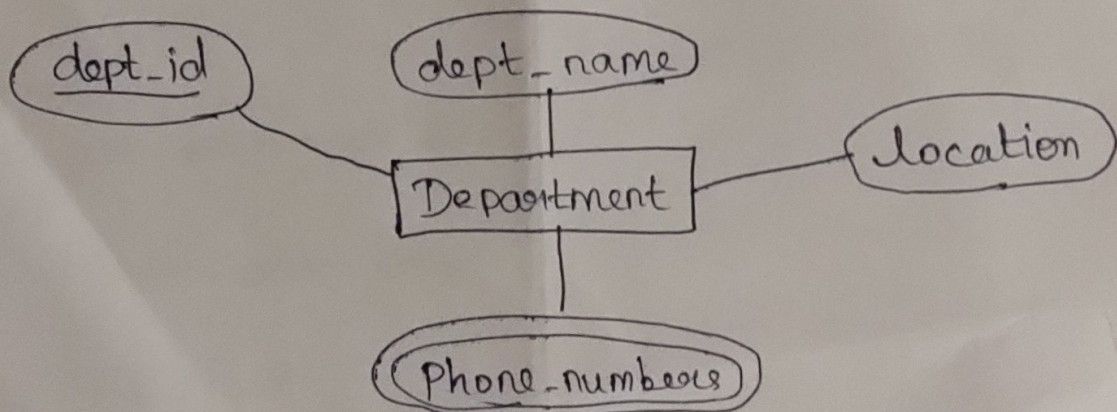 dept_id
dept_name
location
Department
Phone_numbers